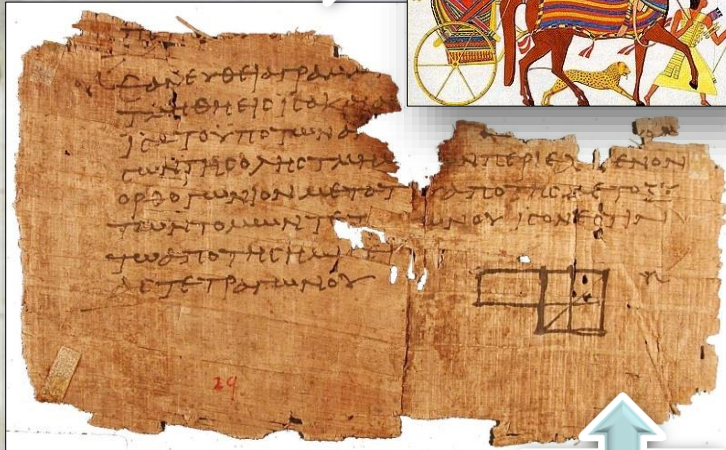 ΕΑΝΕΥΘΕΙΑΓΡΑΜ
ΤΜΗΘΗΕΙΣΙΣΑΚΑ
ΙΣΑΤΟΥΠΟΤΩΝΑ
ΣΩΝΤΗΣΟΛΗΣΤΜΗΜ ΩΝΠΕΡΙΕΧ ΕΝΟΝ
ΟΡΘΟΓΩΝΙΟΝΜΕΤΟΤ ΑΠΟΤΗΣ ΕΤΟΞΥ
ΤΩΝΤΟΜΩΝΤΕΤ ΩΝΟΥ ΙΣΟΝΕΣΤΙΝ
ΤΩΑΠΟΤΗΣΗΜΙ
ΑΣΤΕΤΡΑΓΩΝΟΥ
29